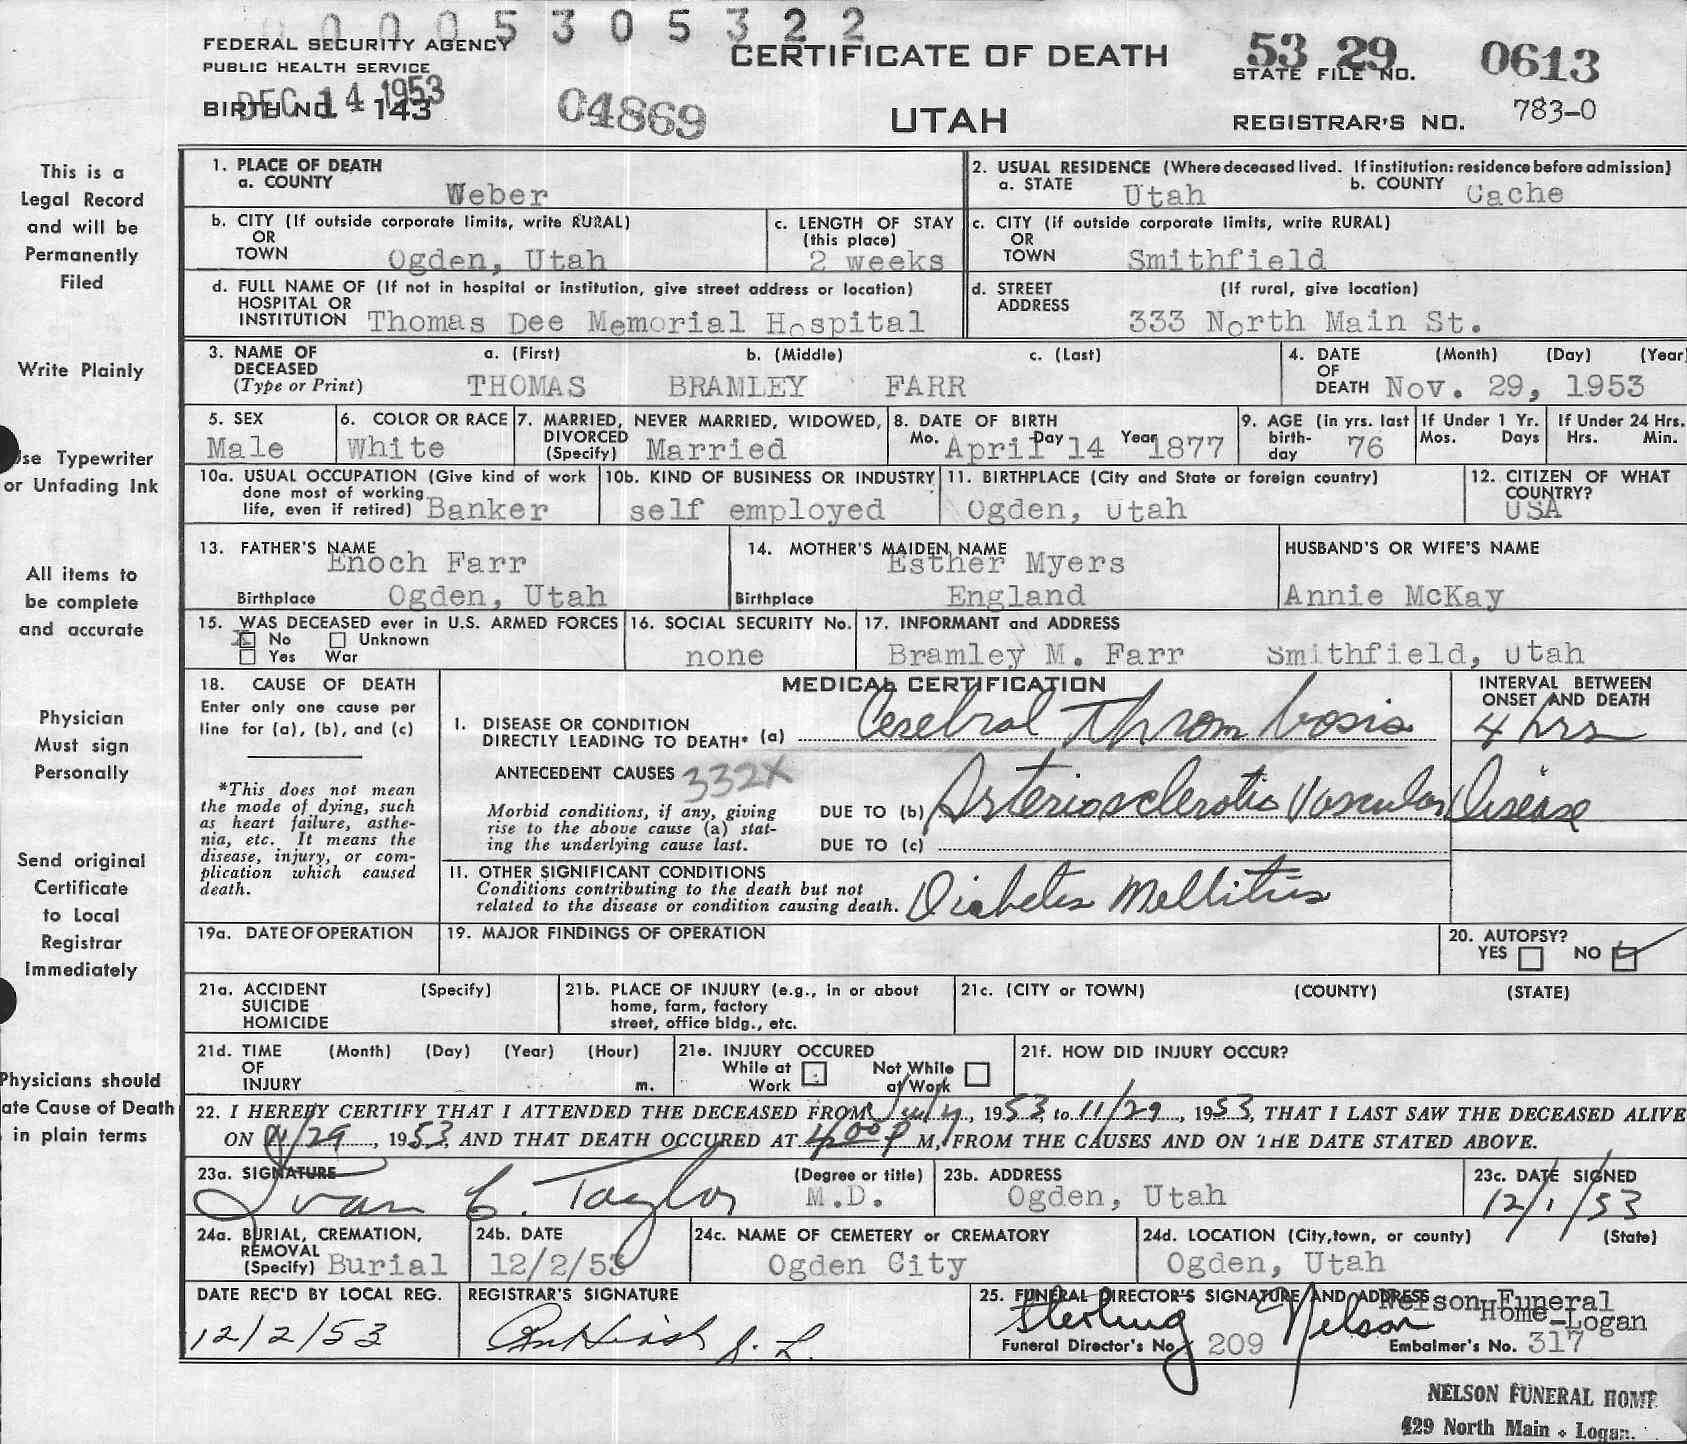 0 0 0 0 5 3 0 5 3 2 2
FEDERAL SECURITY AGENCY
PUBLIC HEALTH SERVICE
BIRTH NO. 143
DEC 14 1953
04869
CERTIFICATE OF DEATH
UTAH
53 29 0613
STATE FILE NO.
REGISTRAR'S NO. 783-0
This is a
Legal Record
and will be
Permanently
Filed
Write Plainly
Use Typewriter
or Unfading Ink
All items to
be complete
and accurate
Physician
Must sign
Personally
Send original
Certificate
to Local
Registrar
Immediately
Physicians should
ate Cause of Death
in plain terms
1. PLACE OF DEATH
a. COUNTY Weber
2. USUAL RESIDENCE (Where deceased lived. If institution: residence before admission)
a. STATE Utah b. COUNTY Cache
b. CITY (If outside corporate limits, write RURAL)
OR
TOWN Ogden, Utah
c. LENGTH OF STAY
(this place)
2 weeks
c. CITY (if outside corporate limits, write RURAL)
OR
TOWN Smithfield
d. FULL NAME OF (If not in hospital or institution, give street address or location)
HOSPITAL OR
INSTITUTION Thomas Dee Memorial Hospital
d. STREET (If rural, give location)
ADDRESS 333 North Main St.
3. NAME OF DECEASED
(Type or Print)
a. (First) b. (Middle) c. (Last)
THOMAS BRAMLEY FARR
4. DATE OF DEATH (Month) (Day) (Year)
Nov. 29, 1953
5. SEX
Male
6. COLOR OR RACE
White
7. MARRIED, NEVER MARRIED, WIDOWED,
DIVORCED
(Specify) Married
8. DATE OF BIRTH
Mo. April Day 14 Year 1877
9. AGE (in yrs. last
birth-
day 76
If Under 1 Yr.
Mos. Days
If Under 24 Hrs.
Hrs. Min.
10a. USUAL OCCUPATION (Give kind of work
done most of working
life, even if retired) Banker
10b. KIND OF BUSINESS OR INDUSTRY
self employed
11. BIRTHPLACE (City and State or foreign country)
Ogden, utah
12. CITIZEN OF WHAT
COUNTRY?
USA
13. FATHER'S NAME
Enoch Farr
Birthplace Ogden, Utah
14. MOTHER'S MAIDEN NAME
Esther Myers
Birthplace England
HUSBAND'S OR WIFE'S NAME
Annie McKay
15. WAS DECEASED ever in U.S. ARMED FORCES
X No Unknown
Yes War
16. SOCIAL SECURITY No.
none
17. INFORMANT and ADDRESS
Bramley M. Farr Smithfield, utah
18. CAUSE OF DEATH
Enter only one cause per
line for (a), (b), and (c)
*This does not mean
the mode of dying, such
as heart failure, asthe-
nia, etc. It means the
disease, injury, or com-
plication which caused
death.
MEDICAL CERTIFICATION
INTERVAL BETWEEN
ONSET AND DEATH
I. DISEASE OR CONDITION
DIRECTLY LEADING TO DEATH* (a) Cerebral Thrombosis 4 hrs
ANTECEDENT CAUSES 332X
Morbid conditions, if any, giving
rise to the above cause (a) stat-
ing the underlying cause last.
DUE TO (b) Arteriosclerotic Vascular Disease
DUE TO (c)
II. OTHER SIGNIFICANT CONDITIONS
Conditions contributing to the death but not
related to the disease or condition causing death. Diabetes Mellitus
19a. DATE OF OPERATION
19. MAJOR FINDINGS OF OPERATION
20. AUTOPSY?
YES NO ✓
21a. ACCIDENT (Specify)
SUICIDE
HOMICIDE
21b. PLACE OF INJURY (e.g., in or about
home, farm, factory
street, office bldg., etc.
21c. (CITY or TOWN) (COUNTY) (STATE)
21d. TIME (Month) (Day) (Year) (Hour)
OF
INJURY m.
21e. INJURY OCCURED
While at Work Not While at Work
21f. HOW DID INJURY OCCUR?
22. I HEREBY CERTIFY THAT I ATTENDED THE DECEASED FROM July, 1953, to 11/29, 1953, THAT I LAST SAW THE DECEASED ALIVE
ON 11/29, 1953, AND THAT DEATH OCCURED AT 4:00 P M, FROM THE CAUSES AND ON THE DATE STATED ABOVE.
23a. SIGNATURE (Degree or title)
Ivan C. Taylor M.D.
23b. ADDRESS
Ogden, Utah
23c. DATE SIGNED
12/1/53
24a. BURIAL, CREMATION,
REMOVAL
(Specify) Burial
24b. DATE
12/2/53
24c. NAME OF CEMETERY or CREMATORY
Ogden City
24d. LOCATION (City, town, or county) (State)
Ogden, Utah
DATE REC'D BY LOCAL REG.
12/2/53
REGISTRAR'S SIGNATURE
25. FUNERAL DIRECTOR'S SIGNATURE AND ADDRESS
Sterling Nelson Nelson Funeral
Home-Logan
Funeral Director's No. 209 Embalmer's No. 317
NELSON FUNERAL HOME
429 North Main - Logan.